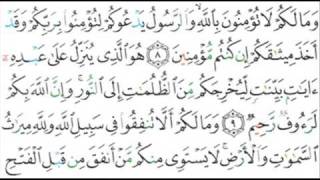 وَمَا لَكُمْ لَا تُؤْمِنُونَ بِاللَّهِ وَالرَّسُولُ يَدْعُوكُمْ لِتُؤْمِنُوا بِرَبِّكُمْ وَقَدْ
أَخَذَ مِيثَاقَكُمْ إِن كُنتُم مُّؤْمِنِينَ ٨ هُوَ الَّذِي يُنَزِّلُ عَلَىٰ عَبْدِهِ
ءَايَاتٍ بَيِّنَاتٍ لِّيُخْرِجَكُم مِّنَ الظُّلُمَاتِ إِلَى النُّورِ وَإِنَّ اللَّهَ بِكُمْ
لَرَءُوفٌ رَّحِيمٌ ٩ وَمَا لَكُمْ أَلَّا تُنفِقُوا فِي سَبِيلِ اللَّهِ وَلِلَّهِ مِيرَاثُ
السَّمَاوَاتِ وَالْأَرْضِ لَا يَسْتَوِي مِنكُم مَّنْ أَنفَقَ مِن قَبْلِ الْفَتْحِ